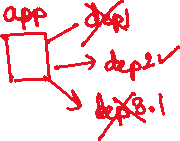 app
dep1
dep2✓
dep3.1